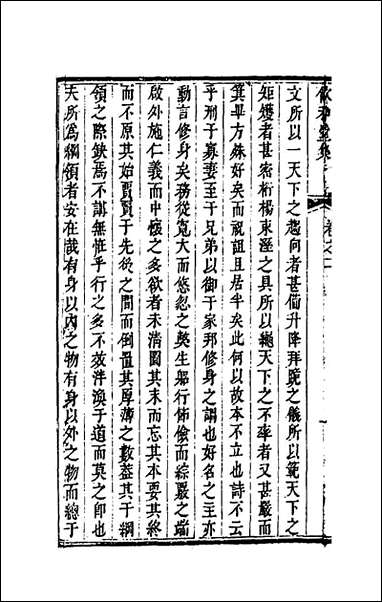 文所以一天下之趨向者甚備升降拜跪之儀所以範天下之
矩矱者甚密桁楊束溼之具所以繩天下之不率者又甚嚴而
箕畢方殊好矣而詛祖且居半矣此何以故本不立也詩不云
乎刑于寡妻至于兄弟以御于家邦修身之謂也好名之主亦
動言修身矣務從寬大而悠忽之奠生躬行節儉而綜嚴之端
啟外施仁義而中懷之多欲者未清圖其末而忘其本要其終
而不原其始賈賢于先後之間而倒置其厚薄之數蓋其于綱
領之際缺焉不講無惟乎行之多不效泮渙于道而莫之卽也
夫所爲綱領者安在哉有身以內之物有身以外之物而總于